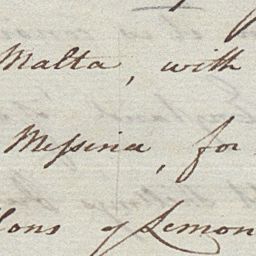 Malta, with
Messina, for
of Lemon